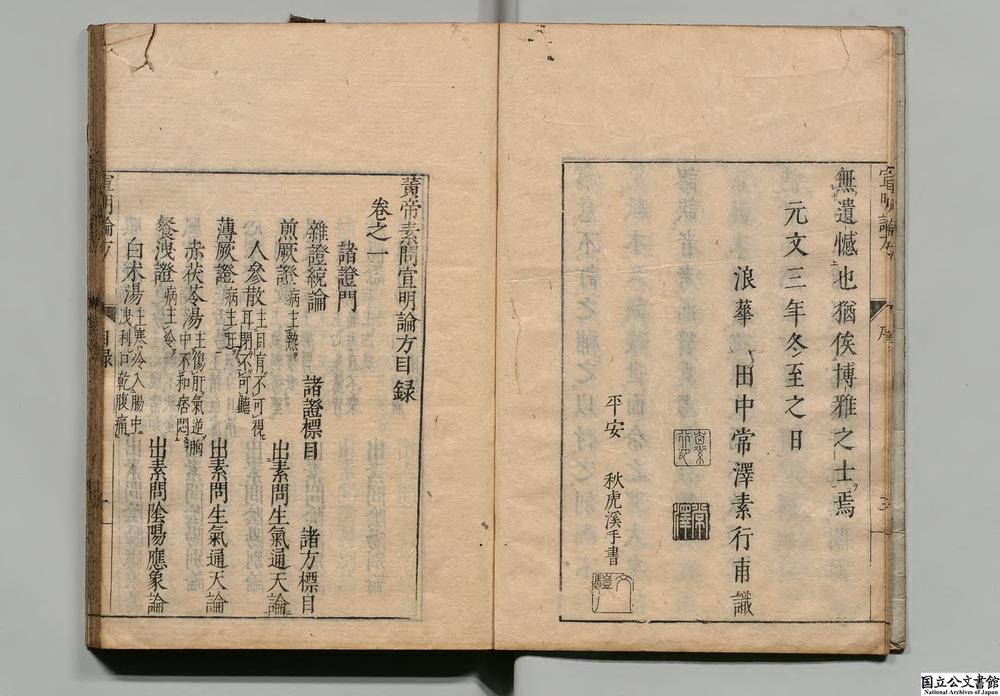 宣明論方
序
三
無遺憾也猶俟博雅之士焉
元文三年冬至之日
浪華田中常澤素行甫識
常澤
平安 秋虎溪手書
黃帝素問宣明論方目錄
卷之一
諸證門
雜證統論 諸證標目 諸方標目
煎厥證病主熱 出素問生氣通天論
人參散主目有不可視耳閉不可聽
薄厥證病主狂 出素問生氣通天論
赤茯苓湯主傷肝氣逆胸中不和痞悶
飱洩證病主冷 出素問陰陽應象論
白朮湯主寒冷入腸虫洩利口乾腹痛
宣明論方
目錄
一
国立公文書館
National Archives of Japan